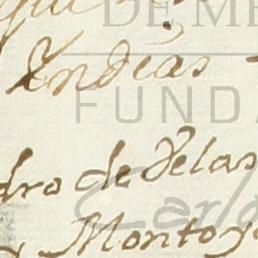 DE ME
Yndias
FUNDA
dro de Velas
Carlo
Montoya